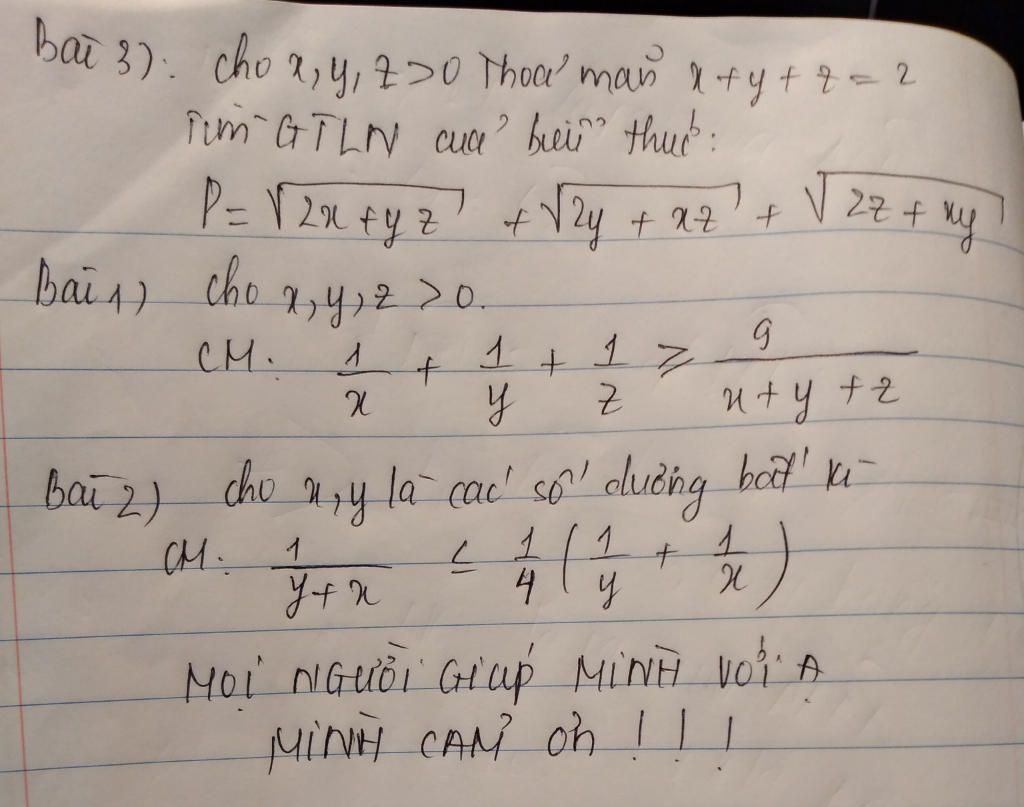 Bài 3). Cho x, y, z > 0 Thoả mãn x + y + z = 2
Tìm GTLN của biểu thức:
P = √(2x + yz) + √(2y + xz) + √(2z + xy)
Bài 1) Cho x, y, z > 0.
CM: 1/x + 1/y + 1/z ≥ 9/(x + y + z)
Bài 2) Cho x, y là các số dương bất kì
CM: 1/(y + x) ≤ 1/4 (1/y + 1/x)
MỌI NGƯỜI GIÚP MÌNH VỚI Ạ
MÌNH CẢM ƠN ! ! !